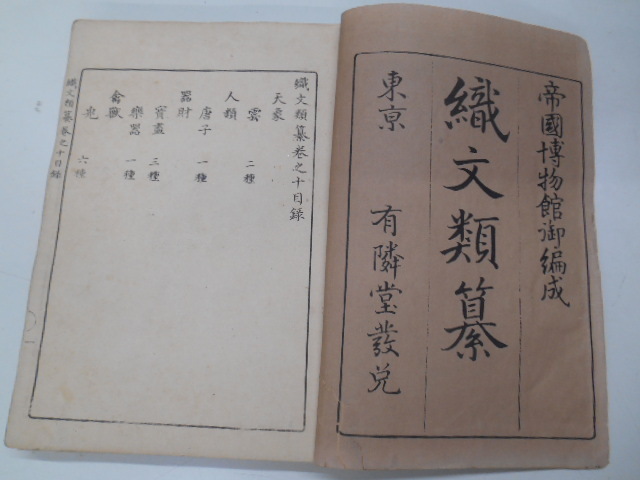 帝國博物館御編成
織文類纂
東京 有隣堂發兌
織文類纂卷之十目錄
天象
雲 二種
人類
唐子 一種
器財
寶盡 三種
樂器 一種
禽獸
兎 六種
織文類纂卷之十目錄